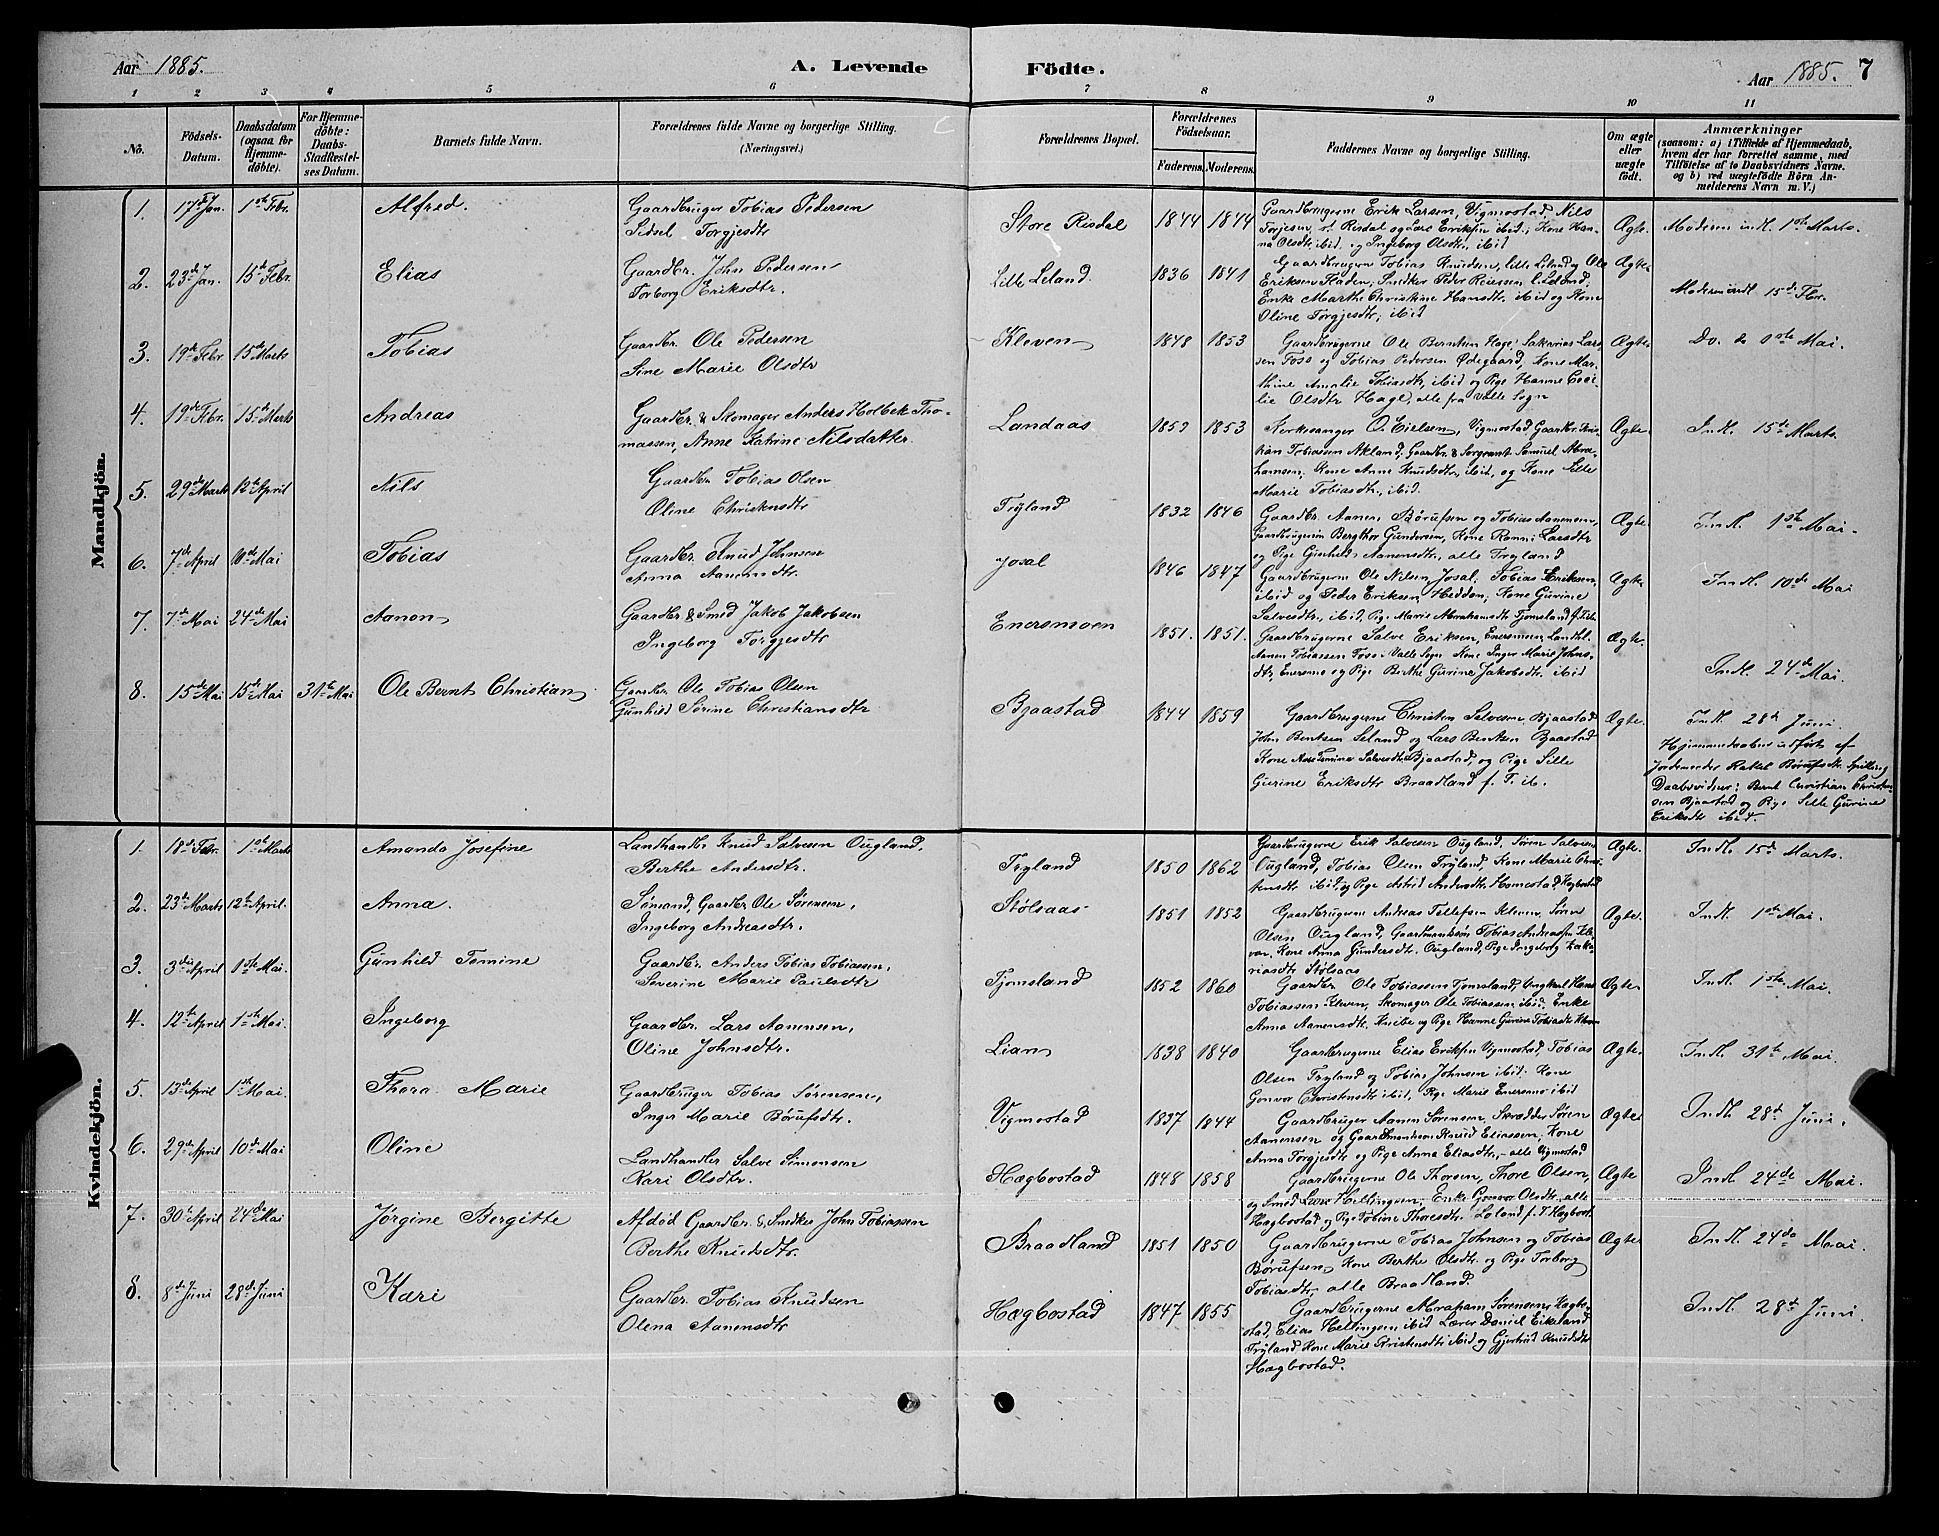 Aar 1885.
A. Levende Födte.
Aar 1885. 7
1 2 3 4 5 6 7 8 9 10 11
No.
Födsels-Datum.
Daabsdatum (ogsaa for Hjemmedöbte).
For Hjemmedöbte: Daabs-Stadfestelses Datum.
Barnets fulde Navn.
Forældrenes fulde Navne og borgerlige Stilling. (Næringsvei.)
Forældrenes Bopæl.
Forældrenes Födselsaar.
Faderens. Moderens.
Faddernes Navne og borgerlige Stilling.
Om ægte eller uægte födt.
Anmærkninger (saasom: a) i Tilfælde af Hjemmedaab, hvem der har forrettet samme, med Tilföielse af to Daabsvidners Navne. og b) ved uægtefödte Börn Anmelderens Navn m. V.)
Mandkjön.
1. 17de Jan. 1ste Febr. Alfred. Gaardbruger Tobias Pedersen
Sidsel Torgjesdtr
Store Risdal 1844 1844 Gaardbrugerne Erik Larsen, Vigmostad, Nils
Torjesen, st. Risdal og Lars Eriksen ibid; Kone Han-
na Olsdtr ibid. og Ingeborg Olsdtr, ibid
Ægte. Moderen indl. 1ste Marts.
2. 23de Jan. 15de Febr. Elias Gaardbr. John Pedersen
Torborg Eriksdtr.
Lille Leland 1836 1841 Gaardbrugerne Tobias Knudsen, Lille Leland, Ole
Eriksen Haden, Snedker Peder Reiersen l. Leland,
Enke Marthe Christine Hansdtr, ibid og Kone
Oline Torgjesdtr, ibid
Ægte. Moderen indl 15de Fbr.
3. 19de Febr 15de Marts Tobias Gaardbr Ole Pedersen
Sine Marie Olsdtr
Kleven 1848 1853 Gaardbrugerne Ole Berntsen Hage, Sakarias Lar-
sen Foss og Tobias Pedersen Ødegaard, Kone Mar-
thine Amalie Tobiasdtr, ibid og Pige Hanne Ceci-
lie Olsdtr Hage, alle fra Valle Sogn
Ægte. Do. 1ste Mai.
4. 19de Febr. 15de Marts Andreas Gaardbr. & Skomager Anders Holbek Tho-
massen, Anne Katrine Nilsdatter.
Landaas 1852 1853 Kirkesanger O. Eielsen, Vigmostad Gaardbr.
Tobiassen Akland, Gaardbr. & Sergeant Samuel Abra-
hamsen, Kone Anne Knudsdtr, ibid, og Kone Sille
Marie Tobiasdtr., ibid.
Ægte. Indl. 15de Marts.
5. 29de Marts 12te April Nils Gaardbr Tobias Olsen
Oline Christensdtr
Tryland 1832 1846 Gaardbr. Aanen Børufsen og Tobias Aanensen,
Gaardbrugerne Bergthor Gundersen, Kone Larsdtr
og Pige Gunhild Aanensdtr., alle Tryland
Ægte. Indl. 1ste Mai.
6. 7de April 10de Mai Tobias Gaardbr. Knud Johnsen
Anna Aanensdtr.
Josal 1846 1847 Gaardbrugerne Ole Nilsen Josal, Tobias Eriksen,
ibid og Peder Eriksen Heddon, Kone Gurine
Salvesdtr, ibid, Pige Marie Abrahamsdtr Tjomsland
Ægte. Indl. 10de Mai
7. 7de Mai 24de Mai Aanon Gaardbr & Smed Jakob Jakobsen
Ingeborg Torgjesdtr
Enersmoen 1851. 1851. Gaardbrugerne Salve Eriksen, Enersmoen, Landhl.
Aanen Tobiassen Foss, Valle Sogn Kone Inger Marie Johns-
dtr, Enersmo og Pige Berthe Gurine Jakobsdtr. ibid
Ægte. Indl. 24de Mai.
8. 15de Mai 15de Mai 31te Mai Ole Bernt Christian Gaardbr. Ole Tobias Olsen
Gunhild Sørine Christiansdtr
Bjaastad 1844 1859 Gaardbrugerne Christen Salvesen, Bjaastad
John Bentsen Leland og Lars Bentsen Bjaastad
Kone Salvesdtr Bjaastad, og Pige Sille
Gurine Eriksdtr Braadland f. T. ib.
Ægte. Indl. 28de Juni
Hjemmedaaben udført af
Jordemoder Rakel Børufsdtr. Spilling
Daabsvidner: Bernt Christian Christen-
sen Bjaastad og Pige Sille Gurine
Eriksdtr ibid.
Kvindekjön.
1. 18de Febr. 1ste Marts Amanda Josefine Landhandler Knud Salvesen Ougland,
Berthe Andersdtr.
Tryland 1850 1862 Gaardbrugerne Erik Salvesen Ougland, Søren Salvesen
Ougland, Tobias Olsen Tryland, Kone Marie Chris-
tensdtr ibid og Pige Astrid Andersdtr Homestad, Hægbostad
Ægte. Indl. 15de Marts.
2. 23de Marts 12te April. Anna. Sømand, Gaardbr. Ole Sørensen,
Ingeborg Andreasdtr.
Stølsaas 1851 1852 Gaardbrugerne Andreas Tellefsen Kleven, Søren
Olsen Ougland, Gaardmandssøn Tobias Andreassen Kle-
ven, Kone Anna Gundersdtr. Ougland, Pige Ingeborg Zaka-
riasdtr Stølsaas
Ægte. Indl. 1ste Mai.
3. 3die April 1ste Mai. Gunhild Tomine Gaardbr. Anders Tobias Tobiassen,
Severine Marie Paulsdtr
Tjomsland 1852 1860 Gaardbr Ole Tobiassen Tjomsland, Ungkarl Hans
Tobiassen Kleven, Skomager Ole Tobiassen, ibid. Enke
Anna Aanensdtr, Knibe og Pige Hanne Gurine Tobiasdtr Kleven
Ægte. Indl. 1ste Mai.
4. 12te April 1ste Mai. Ingeborg Gaardbr. Lars Aanensen,
Oline Johnsdtr.
Lian 1838 1840 Gaardbrugerne Elias Eriksen Vigmostad, Tobias
Olsen Tryland og Tobias Johnsen ibid. Kone
Gonvor Christensdtr ibid, Pige Marie Enersmo ibid
Ægte. Indl. 31te Mai.
5. 13de April 1ste Mai. Thora Marie Gaardbruger Tobias Sørensen,
Inger Marie Børufsdtr.
Vigmostad 1837 1844 Gaardbruger Aanen Sørensen, Skrædder Søren
Aanensen og Gaardmandssøn Knud Eliassen, Kone
Anna Torgjesdtr og Pige Anna Eliasdtr, alle Vigmostad
Ægte Indl. 28de Juni.
6. 29de April 10de Mai Oline Landhandler Salve Simonsen
Kari Olsdtr.
Hægbostad 1848 1858 Gaardbrugerne Ole Thorsen, Thore Olsen,
og Smed Lars Heltingsen, Enke Gonvor Olsdtr, alle
Hægbostad og Pige Tobine Thoresdtr. Loland f. T. Hægbost.
Ægte Indl. 24de Mai.
7. 30te April 24de Mai Jørgine Bergitte Afdöd Gaardbr. & Snedker John Tobiassen
Berthe Knudsdtr.
Braadland 1851 1850 Gaardbrugerne Tobias Johnsen og Tobias
Børufsen, Kone Berthe Olsdtr. og Pige Torborg
Tobiasdtr, alle Braadland.
Ægte Indl. 24de Mai.
8. 8de Juni 28de Juni Kari Gaardbr. Tobias Knudsen
Olena Aanensdtr
Hægbostad 1847 1855 Gaardbrugerne Abraham Sørensen, Hægbo-
stad, Elias Heltingsen ibid Lærer Daniel Eikeland
Tryland, Kone Marie Kristensdtr ibid og Gjertrid Knudsdtr
Hægbostad.
Indl. 28de Juni.